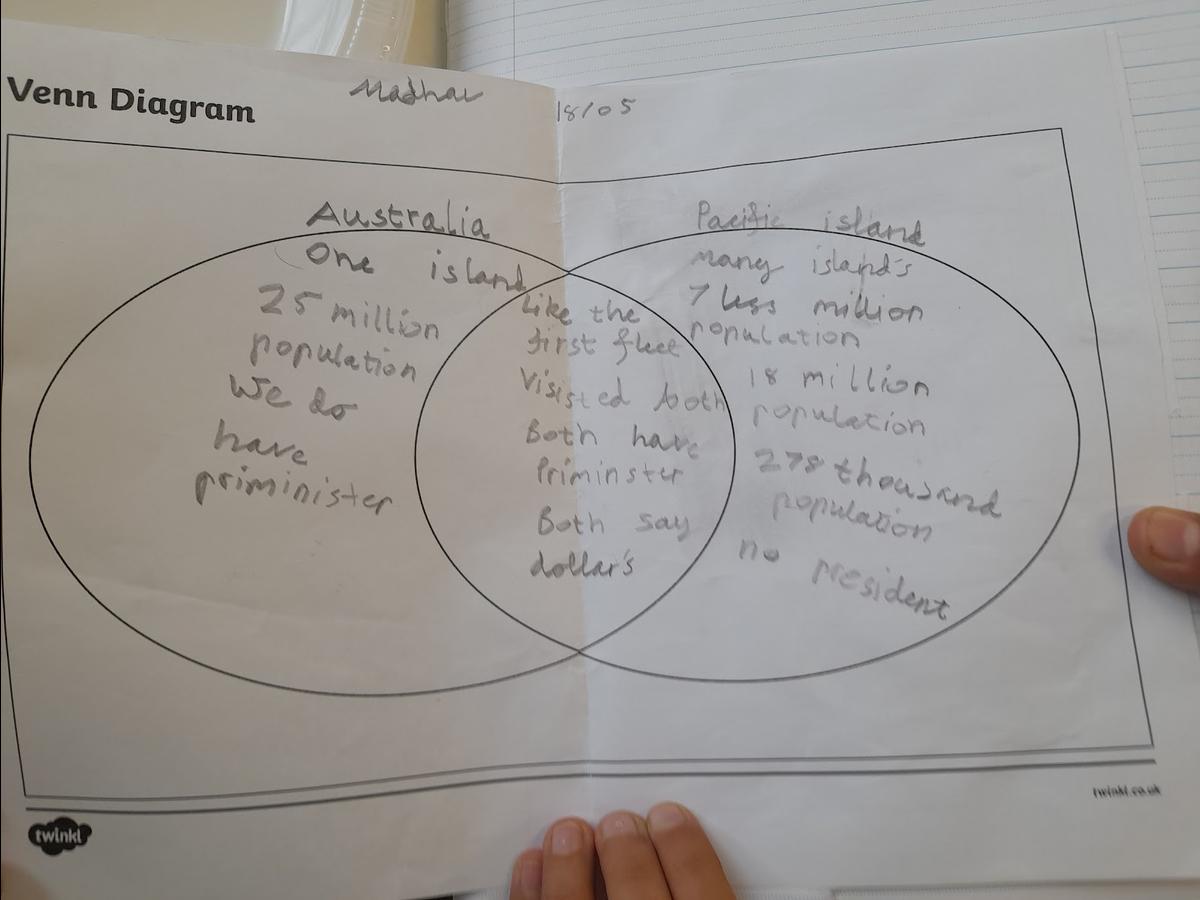 Venn Diagram
Madhav
18/05
Australia
One island
25 million
population
We do
have
priminister
Like the
first fleet
Visisted both
Both have
Priminster
Both say
dollar's
Pacific island
many island's
7 less million
population
18 million
population
278 thousand
population
no president
twinkl
twinkl.co.uk